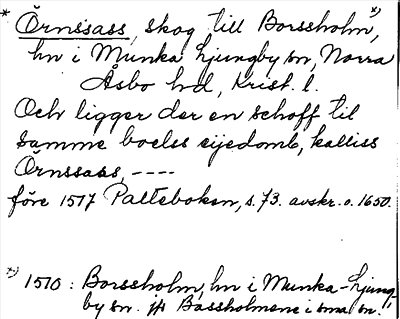 * Örnssass, skog till Borssholm *),
hn i Munka Ljungby sn, Norra
Åsbo hd, Krist. l.
Och ligger der en schoff til
samme boelss eijedomb, kalliss
Örnssass, ----
före 1517 Palteboken, s. 73. avskr. o. 1650.
*) 1510: Borssholm, hn i Munka-Ljung-
by sn. jfr Bassholmene i sma sn.